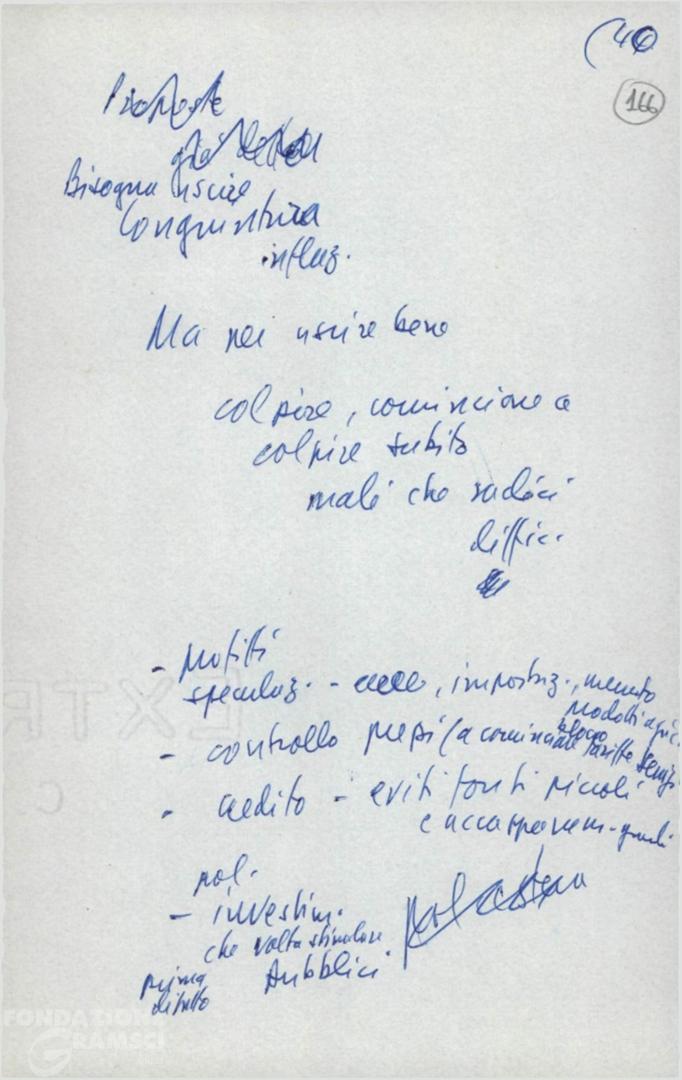 (40
166
Proposte
già
Bisogna uscire
Congiuntura
influz.
Ma poi uscire bene
colpire, cominciare a
colpire subito
mali che radici
diffic.
- profitti
speculaz. - aree, importaz., mercato
prodotti agric.
- controllo prezzi (a cominciare blocco tariffe servizi
- credito - eviti fonti piccoli
e accaparram. grandi
pol.
- investim.
che volta stimolare
prima
pubblici
FONDAZIONE
GRAMSCI